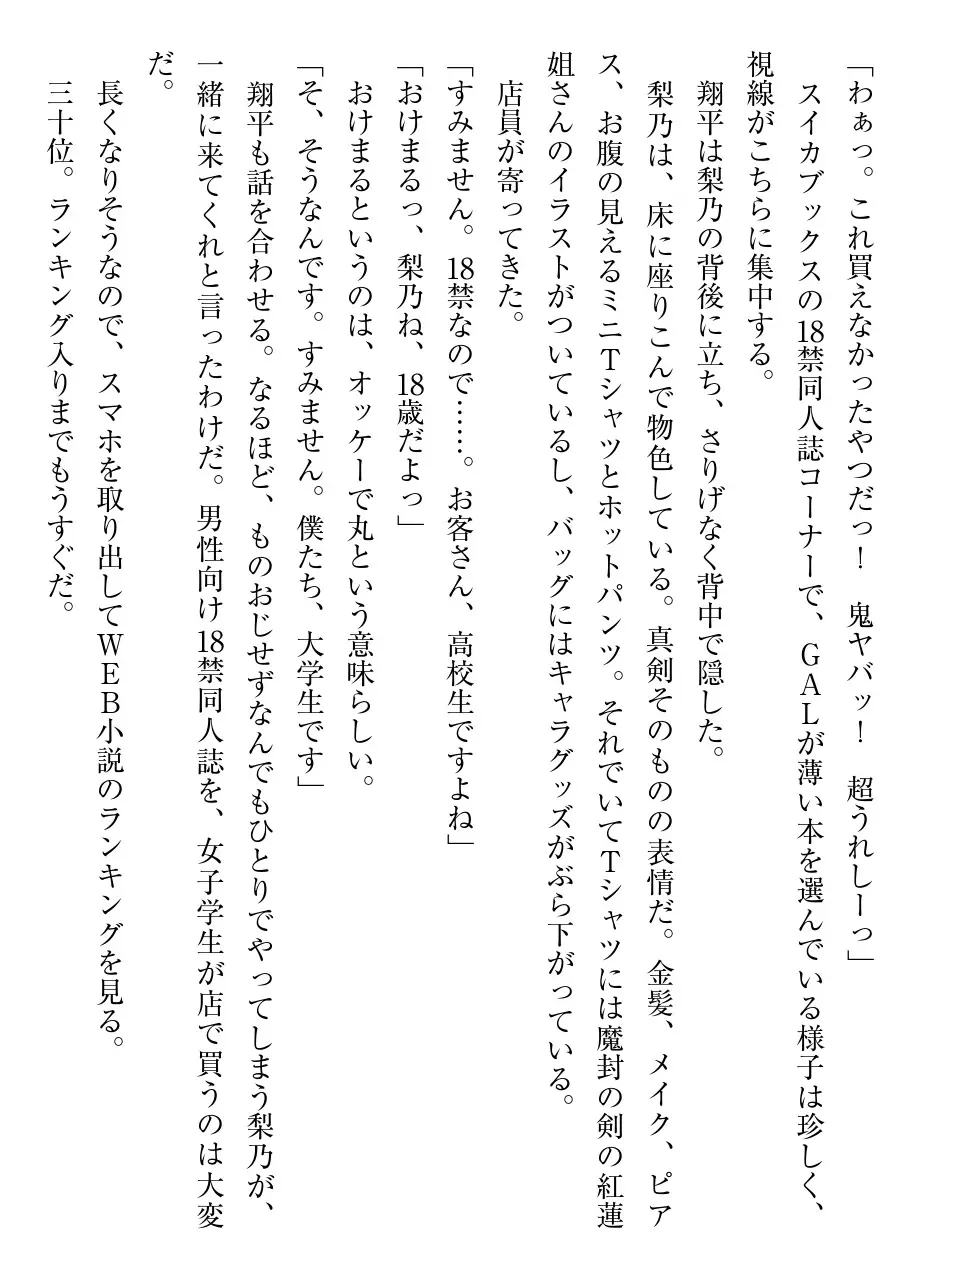 「わぁっ。これ買えなかったやつだっ！　鬼ヤバッ！　超うれしーっ」
　スイカブックスの18禁同人誌コーナーで、ＧＡＬが薄い本を選んでいる様子は珍しく、
視線がこちらに集中する。
　翔平は梨乃の背後に立ち、さりげなく背中で隠した。
　梨乃は、床に座りこんで物色している。真剣そのものの表情だ。金髪、メイク、ピア
ス、お腹の見えるミニＴシャツとホットパンツ。それでいてＴシャツには魔封の剣の紅蓮
姐さんのイラストがついているし、バッグにはキャラグッズがぶら下がっている。
　店員が寄ってきた。
「すみません。18禁なので……。お客さん、高校生ですよね」
「おけまるっ、梨乃ね、18歳だよっ」
　おけまるというのは、オッケーで丸という意味らしい。
「そ、そうなんです。すみません。僕たち、大学生です」
　翔平も話を合わせる。なるほど、ものおじせずなんでもひとりでやってしまう梨乃が、
一緒に来てくれと言ったわけだ。男性向け18禁同人誌を、女子学生が店で買うのは大変
だ。
　長くなりそうなので、スマホを取り出してＷＥＢ小説のランキングを見る。
　三十位。ランキング入りまでもうすぐだ。